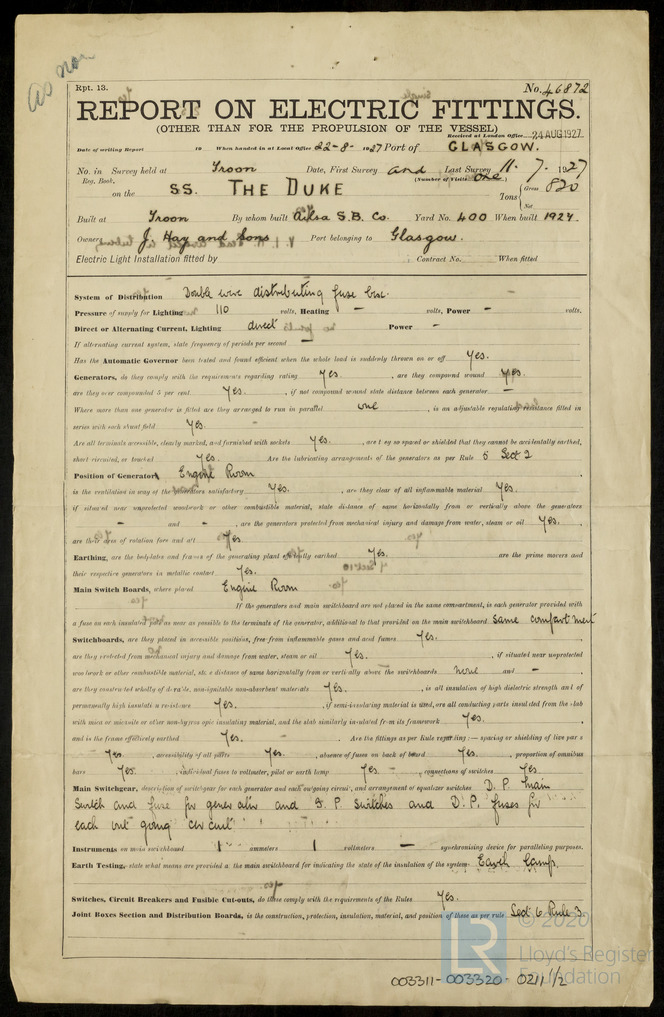 as now
Rpt. 13.
No. 46872
REPORT ON ELECTRIC FITTINGS.
(OTHER THAN FOR THE PROPULSION OF THE VESSEL)
Received at London Office 24 AUG 1927
Date of writing Report 19 When handed in at Local Office 22-8-1927 Port of GLASGOW.
No. in Survey held at Troon Date, First Survey and Last Survey 11. 7. 1927
Reg. Book. (Number of Visits one)
on the SS. THE DUKE Tons Gross 820
Net
Built at Troon By whom built Ailsa S.B. Co. Yard No. 400 When built 1927
Owners J. Hay and Sons Port belonging to Glasgow.
Electric Light Installation fitted by Contract No. When fitted
System of Distribution Double wire distributing fuse box.
Pressure of supply for Lighting 110 volts, Heating - volts, Power - volts.
Direct or Alternating Current, Lighting direct Power -
If alternating current system, state frequency of periods per second -
Has the Automatic Governor been tested and found efficient when the whole load is suddenly thrown on or off Yes.
Generators, do they comply with the requirements regarding rating Yes, are they compound wound Yes.
are they over compounded 5 per cent. Yes., if not compound wound state distance between each generator -
Where more than one generator is fitted are they arranged to run in parallel one, is an adjustable regulating resistance fitted in
series with each shunt field Yes.
Are all terminals accessible, clearly marked, and furnished with sockets Yes., are they so spaced or shielded that they cannot be accidentally earthed,
short circuited, or touched Yes. Are the lubricating arrangements of the generators as per Rule 5 Sect 2
Position of Generators Engine Room
is the ventilation in way of the generators satisfactory Yes., are they clear of all inflammable material Yes.
if situated near unprotected woodwork or other combustible material, state distance of same horizontally from or vertically above the generators
- and -, are the generators protected from mechanical injury and damage from water, steam or oil Yes.,
are their axes of rotation fore and aft Yes.
Earthing, are the bedplates and frames of the generating plant efficiently earthed Yes. are the prime movers and
their respective generators in metallic contact Yes.
Main Switch Boards, where placed Engine Room
If the generators and main switchboard are not placed in the same compartment, is each generator provided with
a fuse on each insulated pole as near as possible to the terminals of the generator, additional to that provided on the main switchboard same compartment
Switchboards, are they placed in accessible positions, free from inflammable gases and acid fumes Yes.,
are they protected from mechanical injury and damage from water, steam or oil Yes., if situated near unprotected
woodwork or other combustible material, state distance of same horizontally from or vertically above the switchboards none and -,
are they constructed wholly of durable, non-ignitable non-absorbent materials Yes., is all insulation of high dielectric strength and of
permanently high insulation resistance Yes., if semi-insulating material is used, are all conducting parts insulated from the slab
with mica or micanite or other non-hygroscopic insulating material, and the slab similarly insulated from its framework Yes.,
and is the frame effectively earthed Yes. Are the fittings as per Rule regarding:— spacing or shielding of live parts
Yes., accessibility of all parts Yes., absence of fuses on back of board Yes., proportion of omnibus
bars Yes., individual fuses to voltmeter, pilot or earth lamp Yes., connections of switches Yes.
Main Switchgear, description of switchgear for each generator and each outgoing circuit, and arrangement of equalizer switches D. P. main
switch and fuse for generator and S. P. switches and D. P. fuses for
each out going circuit
Instruments on main switchboard 1 ammeters 1 voltmeters - synchronising device for paralleling purposes.
Earth Testing, state what means are provided at the main switchboard for indicating the state of the insulation of the system Earth Lamp.
Switches, Circuit Breakers and Fusible Cut-outs, do these comply with the requirements of the Rules Yes.
Joint Boxes Section and Distribution Boards, is the construction, protection, insulation, material, and position of these as per rule Sect 6 Rule 3.
© 2020
LR
Lloyd's Register
Foundation
003311-003320-0211 1/2